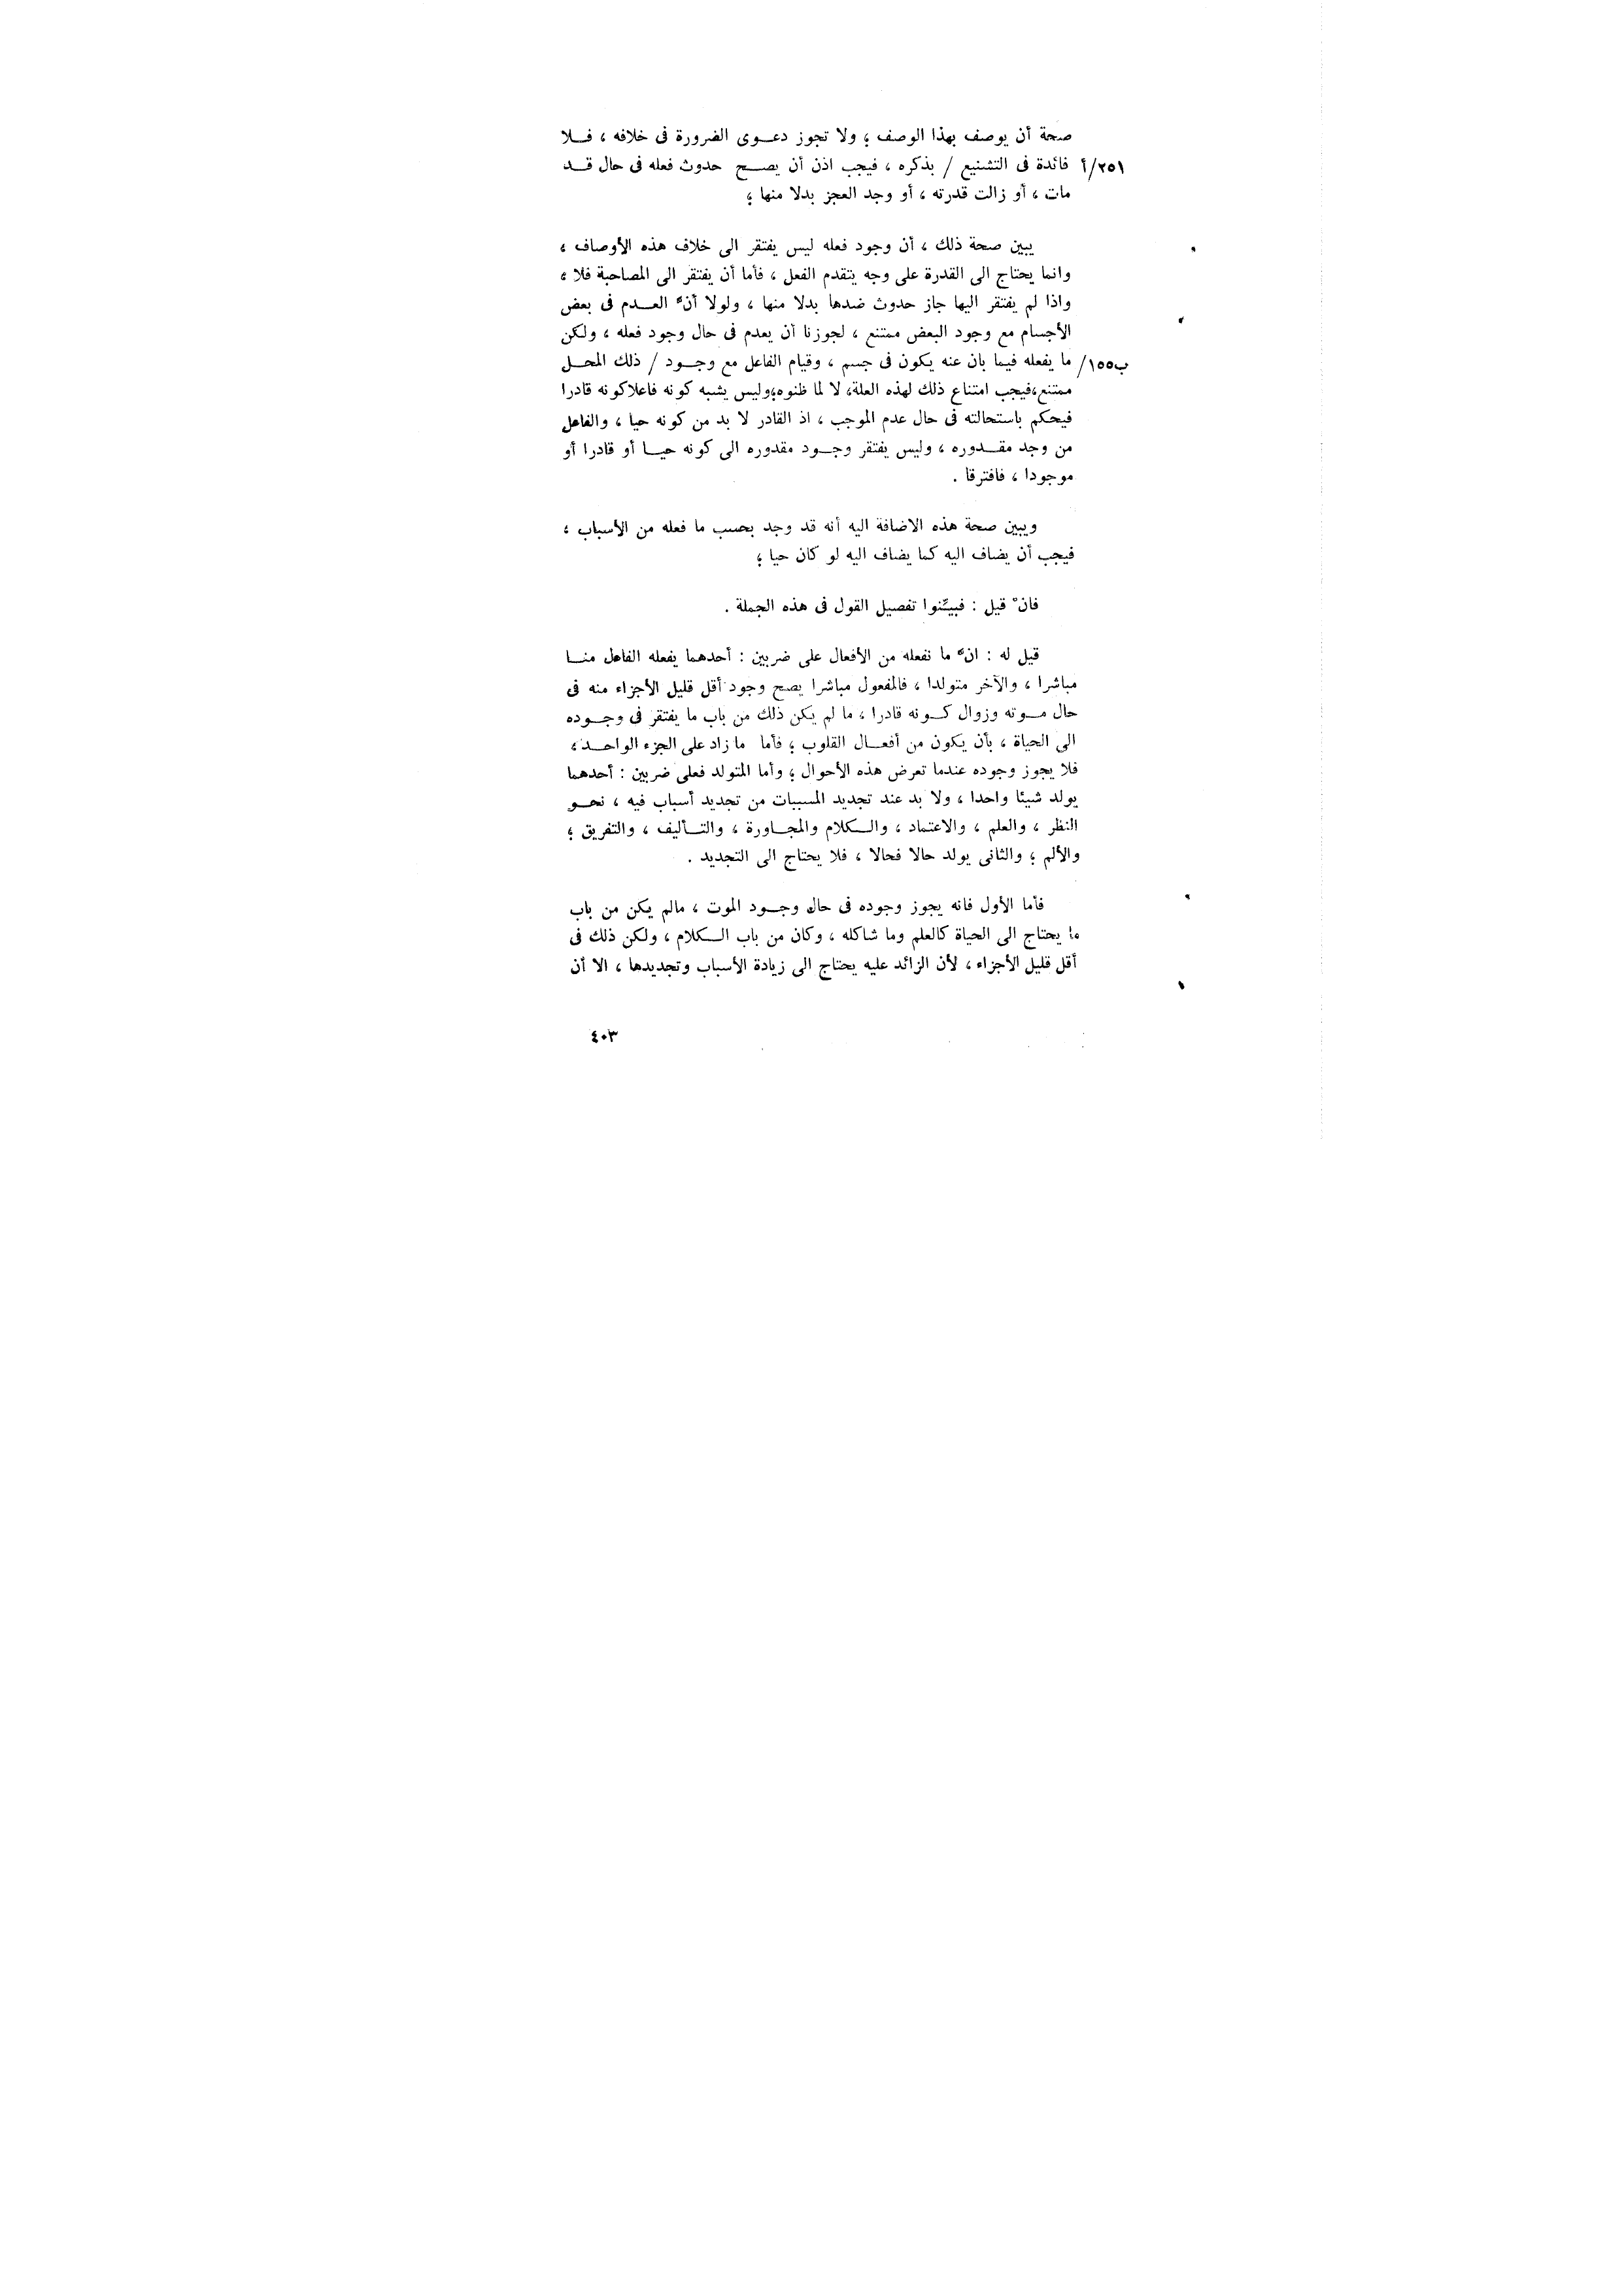 صحة أن يوصف بهذا الوصف ؛ ولا تجوز دعوى الضرورة فى خلافه ، فلا
٢٥١/أ فائدة فى التشنيع / بذكره ، فيجب اذن أن يصح حدوث فعله فى حال قد
مات ، أو زالت قدرته ، أو وجد العجز بدلا منها ؛
يبين صحة ذلك ، أن وجود فعله ليس يفتقر الى خلاف هذه الأوصاف ،
وانما يحتاج الى القدرة على وجه يتقدم الفعل ، فأما أن يفتقر الى المصاحبة فلا ؛
واذا لم يفتقر اليها جاز حدوث ضدها بدلا منها ، ولولا أنّ العدم فى بعض
الأجسام مع وجود البعض ممتنع ، لجوزنا أن يعدم فى حال وجود فعله ، ولكن
ب١٥٥/ ما يفعله فيما بان عنه يكون فى جسم ، وقيام الفاعل مع وجود / ذلك المحل
ممتنع،فيجب امتناع ذلك لهذه العلة، لا لما ظنوه؛وليس يشبه كونه فاعلا كونه قادرا
فيحكم باستحالته فى حال عدم الموجب ، اذ القادر لا بد من كونه حيا ، والفاعل
من وجد مقدوره ، وليس يفتقر وجود مقدوره الى كونه حيا أو قادرا أو
موجودا ، فافترقا .
ويبين صحة هذه الاضافة اليه أنه قد وجد بحسب ما فعله من الأسباب ،
فيجب أن يضاف اليه كما يضاف اليه لو كان حيا ؛
فانْ قيل : فبيّنوا تفصيل القول فى هذه الجملة .
قيل له : انّ ما نفعله من الأفعال على ضربين : أحدهما يفعله الفاعل منا
مباشرا ، والآخر متولدا ، فالمفعول مباشرا يصح وجود أقل قليل الأجزاء منه فى
حال موته وزوال كونه قادرا ، ما لم يكن ذلك من باب ما يفتقر فى وجوده
الى الحياة ، بأن يكون من أفعال القلوب ؛ فأما ما زاد على الجزء الواحد ،
فلا يجوز وجوده عندما تعرض هذه الأحوال ؛ وأما المتولد فعلى ضربين : أحدهما
يولد شيئا واحدا ، ولا بد عند تجديد المسببات من تجديد أسباب فيه ، نحو
النظر ، والعلم ، والاعتماد ، والكلام والمجاورة ، والتأليف ، والتفريق ؛
والألم ؛ والثانى يولد حالا فحالا ، فلا يحتاج الى التجديد .
فأما الأول فانه يجوز وجوده فى حال وجود الموت ، مالم يكن من باب
ما يحتاج الى الحياة كالعلم وما شاكله ، وكان من باب الكلام ، ولكن ذلك فى
أقل قليل الأجزاء ، لأن الزائد عليه يحتاج الى زيادة الأسباب وتجديدها ، الا أن
٤٠٣